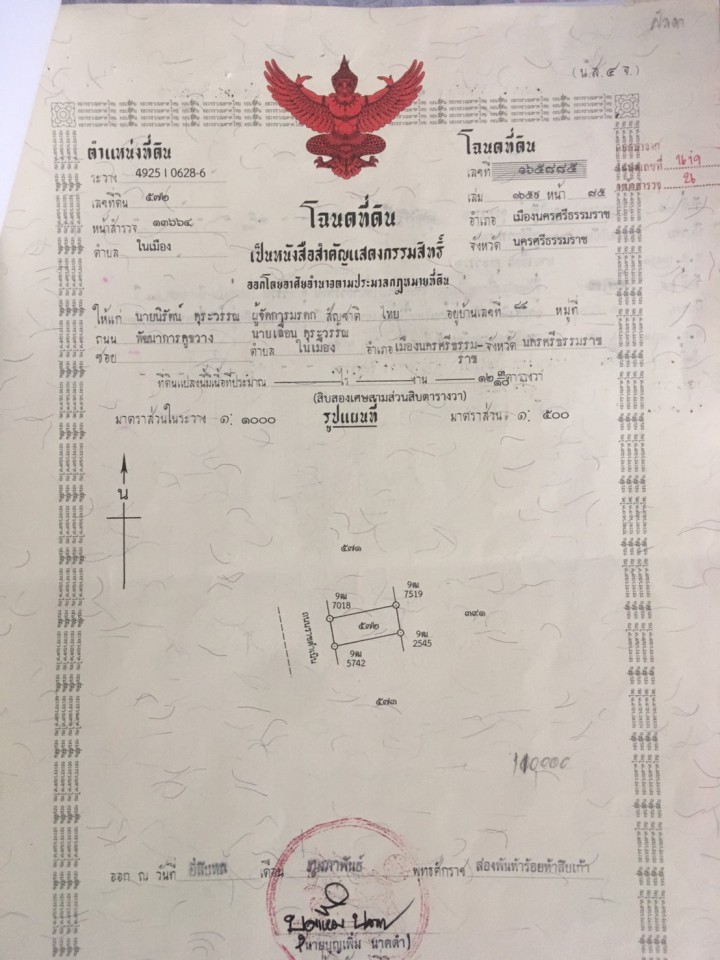 (น.ส.๔ จ.)
ตำแหน่งที่ดิน
ระวาง 4925 I 0628-6
เลขที่ดิน ๕๗๒
หน้าสำรวจ ๑๓๖๖๔
ตำบล ในเมือง
โฉนดที่ดิน
เลขที่ ๑๖๕๘๘๕
เล่ม ๑๖๕๙ หน้า ๘๕
อำเภอ เมืองนครศรีธรรมราช
จังหวัด นครศรีธรรมราช
โฉนดที่ดิน
เป็นหนังสือสำคัญแสดงกรรมสิทธิ์
ออกโดยอาศัยอำนาจตามประมวลกฎหมายที่ดิน
ให้แก่ นายนิรัตน์ ตุระวรรณ ผู้จัดการมรดก สัญชาติ ไทย อยู่บ้านเลขที่ ๘๘ หมู่ที่
ถนน พัฒนาการคูขวาง นายเลื่อน ตุระวรรณ
ซอย ตำบล ในเมือง อำเภอ เมืองนครศรีธรรม- จังหวัด นครศรีธรรมราช
ราช
ที่ดินแปลงนี้มีเนื้อที่ประมาณ ไร่ งาน ๑๒ ตารางวา
(สิบสองเศษสามส่วนสิบตารางวา)
มาตราส่วนในระวาง ๑: ๑๐๐๐ รูปแผนที่ มาตราส่วน ๑: ๕๐๐
น
๕๗๑
9ฒ
7018
9ฒ
7519
๕๗๒
๓๙๑
9ฒ
5742
9ฒ
2545
ถนนราชดำเนิน
๕๗๓
110000
ออก ณ วันที่ ยี่สิบหก เดือน กุมภาพันธ์ พุทธศักราช สองพันห้าร้อยห้าสิบเก้า
(นายบุญเพิ่ม นาคดำ)